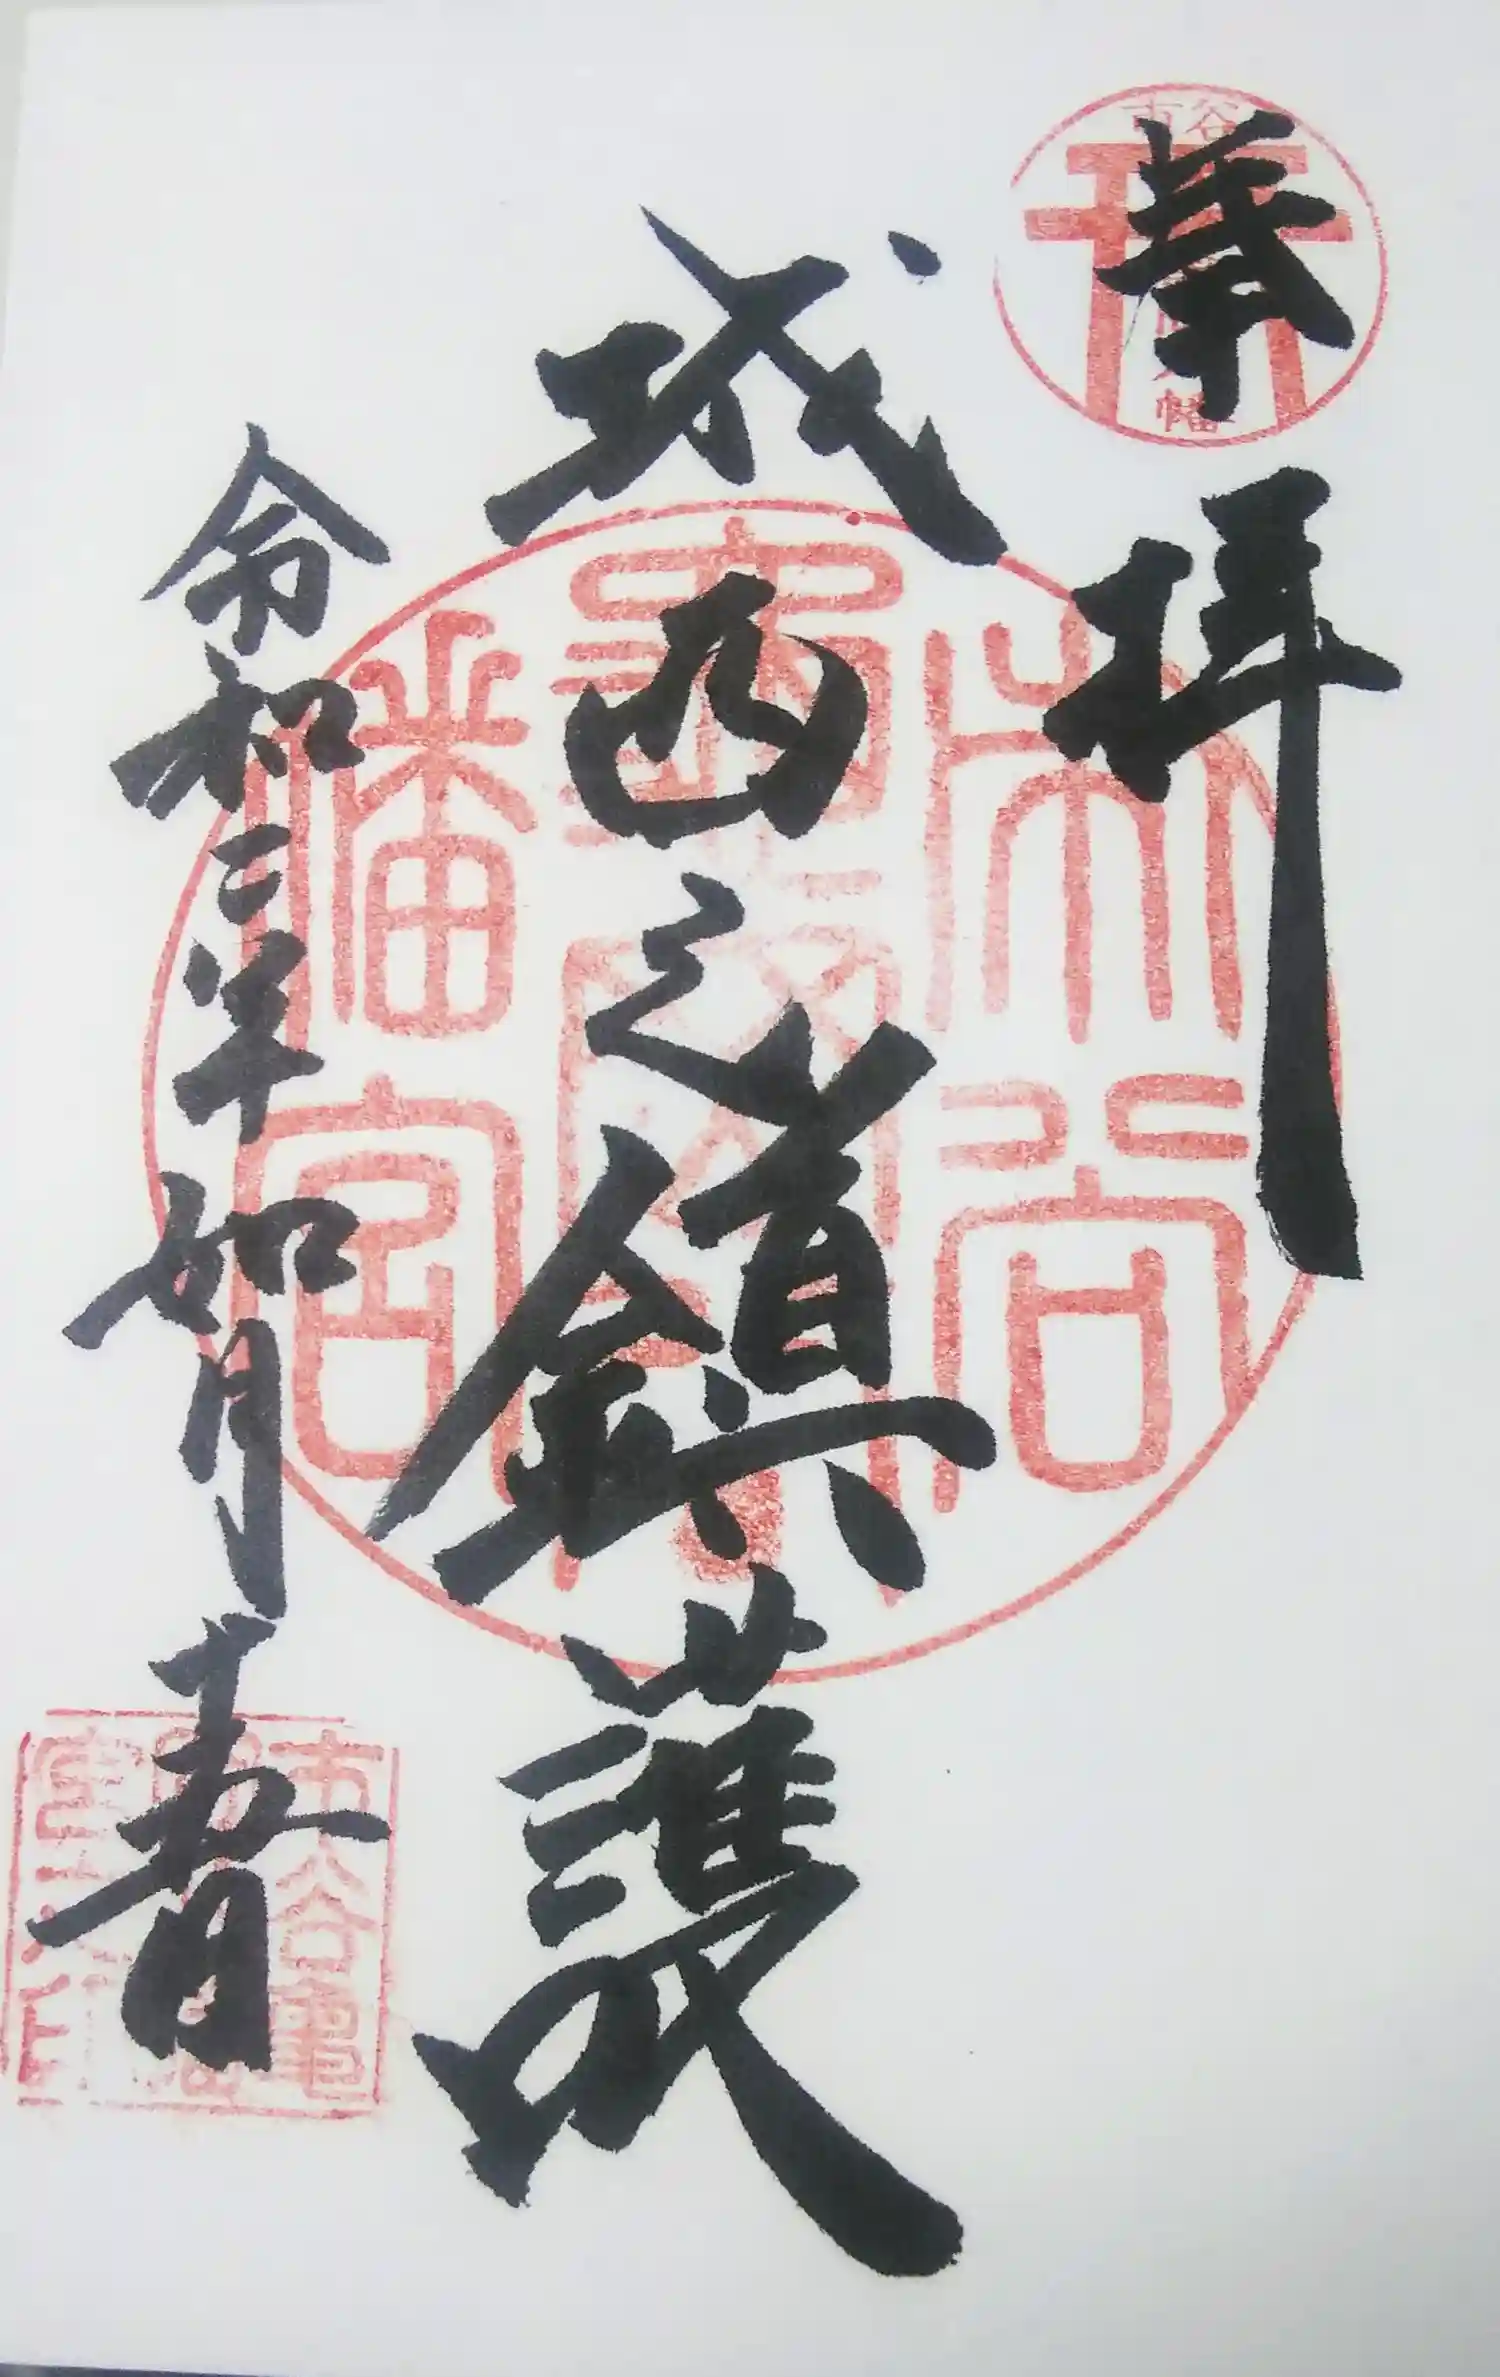 奉拝
城西之鎮護
令和二年如月十五日
市谷
八幡
市谷亀岡八幡宮
市谷亀
宮之印